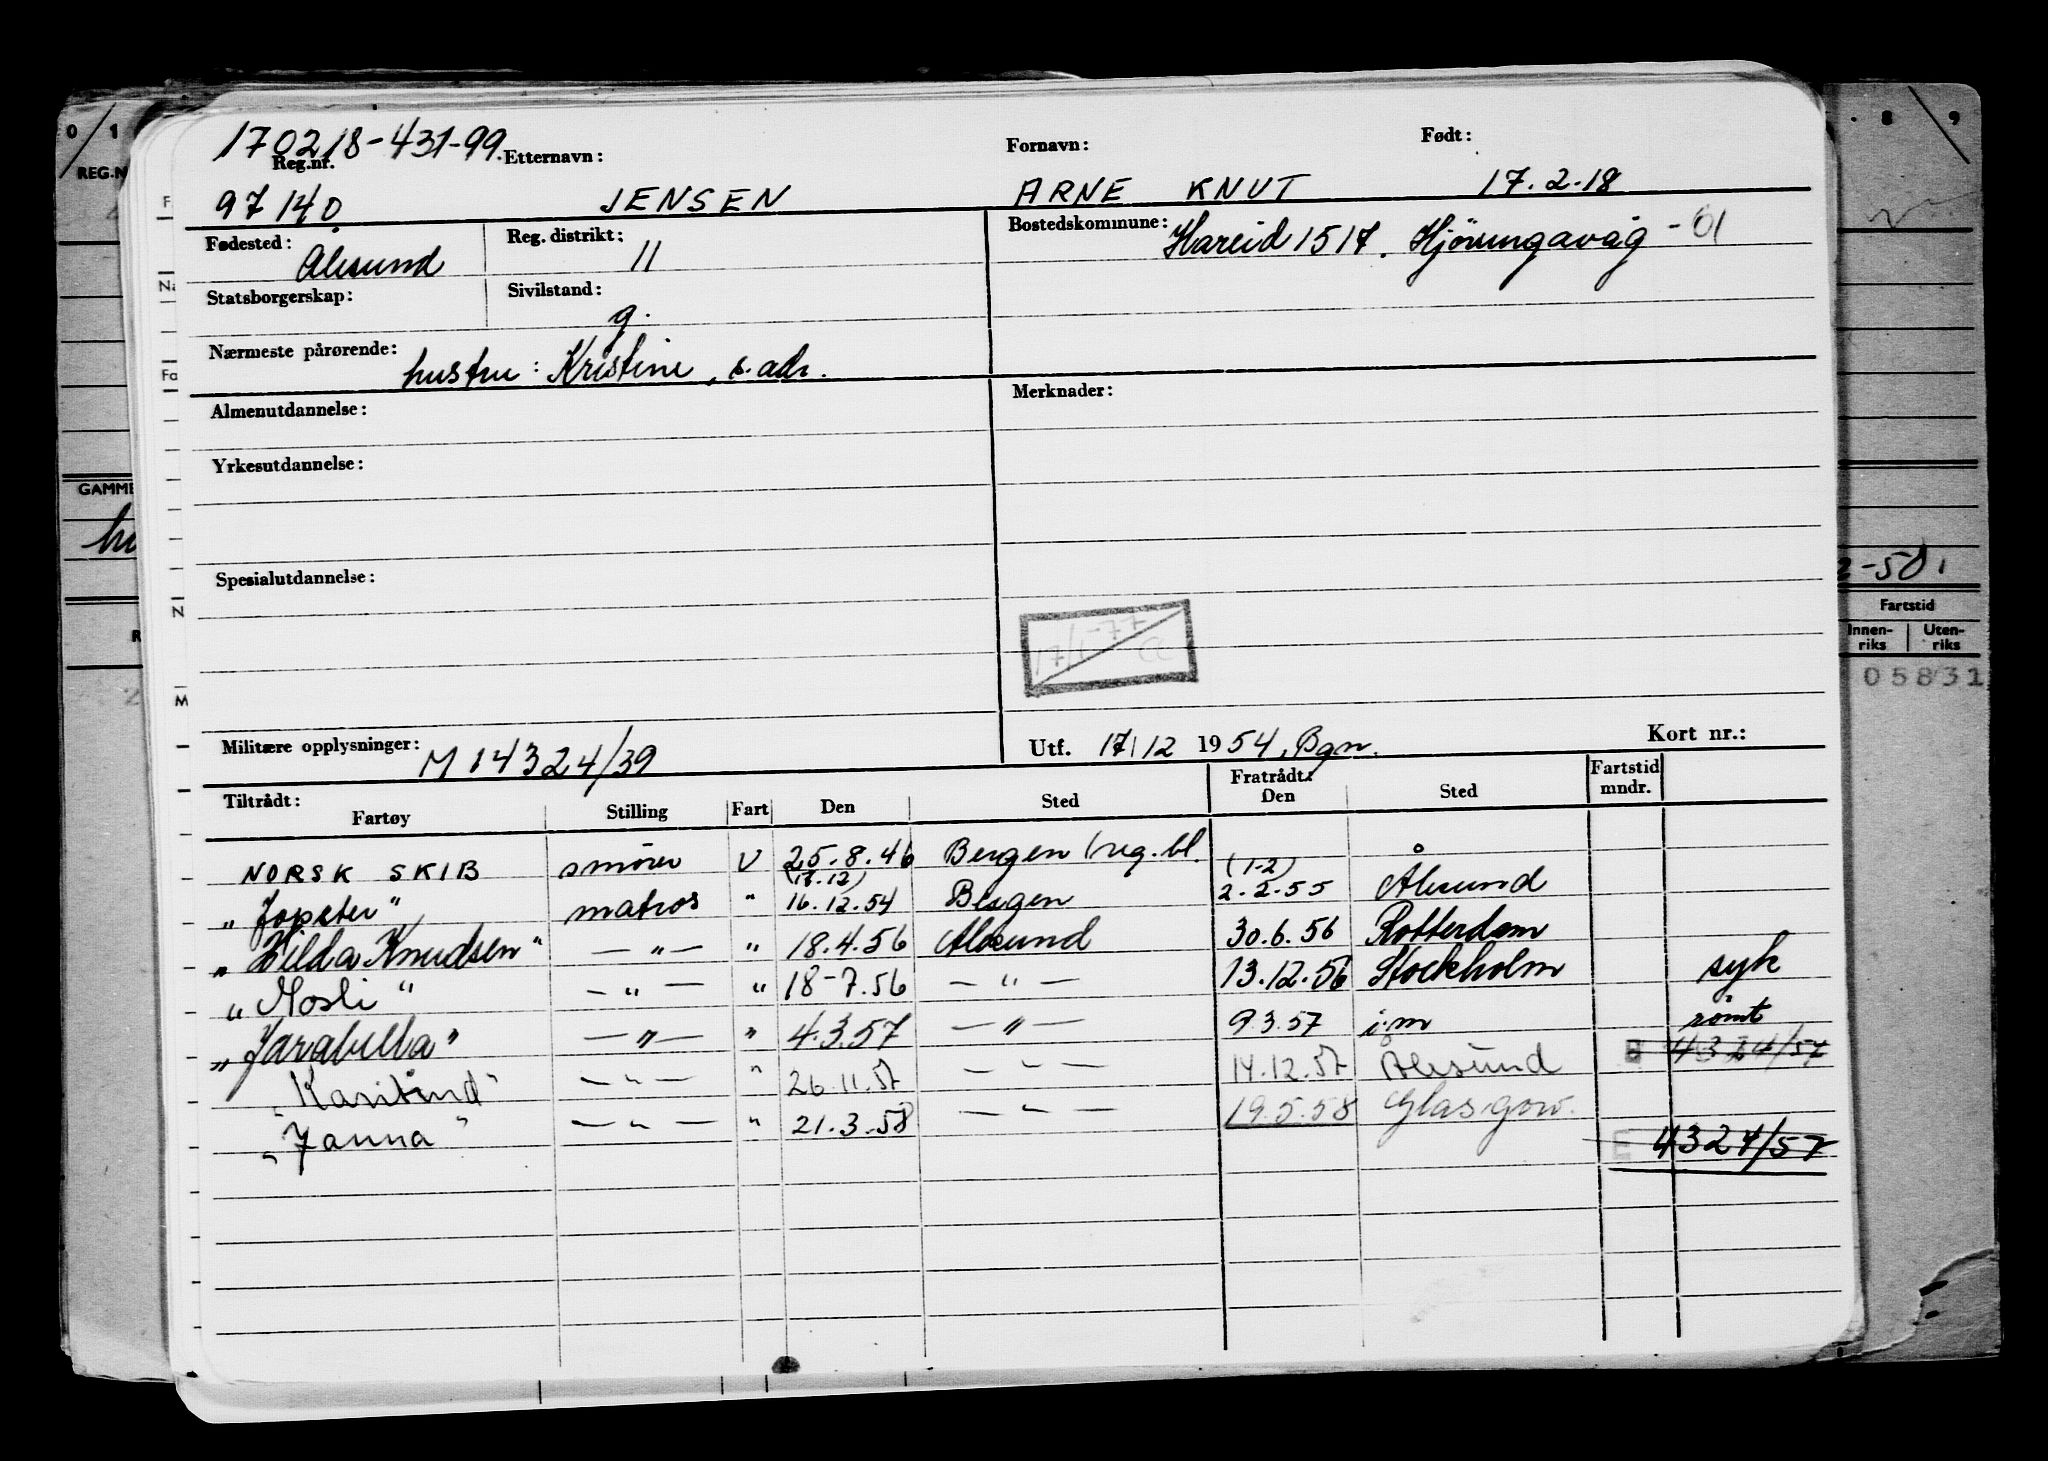 170218-431-99.
Reg.nr. Etternavn: Fornavn: Født:
97140 JENSEN ARNE KNUT 17.2.18
Fødested: Ålesund Reg. distrikt: 11 Bostedskommune: Hareid 1517. Hjörungavåg - 01
Statsborgerskap: Sivilstand: g.
Nærmeste pårørende: hustru: Kristine, s. adr.
Almenutdannelse: Merknader:
Yrkesutdannelse:
Spesialutdannelse:
17/1-77
Militære opplysninger: M 14324/39 Utf. 17/12 1954, Bgn. Kort nr.:
Tiltrådt: Fratrådt: Fartstid
Fartøy Stilling Fart Den Sted Den Sted mndr.
NORSK SKIB smører U 25.8.46 Bergen (reg. bl.
(18.12) (1-2)
"Jopeter" matros " 16.12.54 Bergen 2.2.55 Ålesund
"Hilda Knudsen" — " — " 18.4.56 Ålesund 30.6.56 Rotterdam
"Mosli" — " — " 18-7.56 — " — 13.12.56 Stockholm syk
"Jarabella" — " — " 4.3.57 — " — 9.3.57 i.m rømt
4324/57
"Karitind" — " — " 26.11.57 — " — 14.12.57 Ålesund
"Janna" — " — " 21.3.58 — " — 19.5.58 Glasgow.
4324/57
0 1 8 9
REG.N
GAMME
2-50.
Fartstid
Innen- Uten-
riks riks
05831
F
Na
Fa
N
M